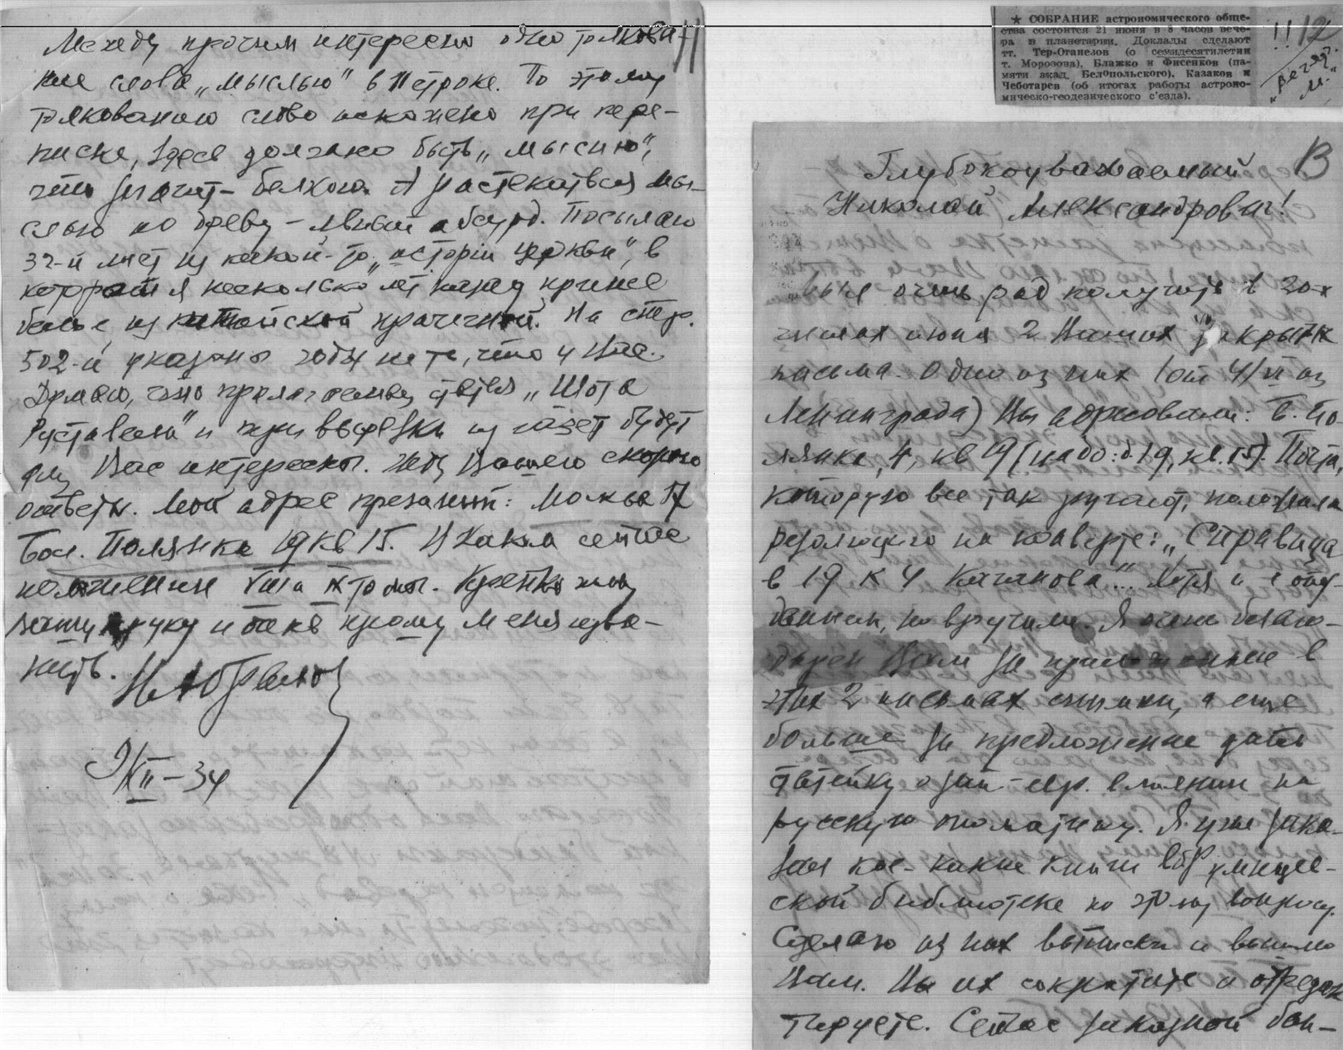 11
Между прочим интересно одно толкова-
ние слова „мыслью" в Петроне. По этому
толкованию слово искажено при пере-
писке, здесь должно быть „мысию",
что значит – белкою. А растекаться мы-
слью по древу – явный абсурд. Посылаю
32-й лист из какой-то „исторiи церкви", в
которой я несколько лет назад принес
белье из китайской прачечной. На стр.
502-й указаны годы не те, что у Вас.
Думаю, что „Шота
Руставели" и вырезки из газет будут
для Вас интересны. Жду Вашего скорого
ответа. Мой адрес прежний: Москва 17
Бол. Полянка 19 кв 15. Начал сейчас
VIII и IX томы. Крепко жму
Вашу руку и прошу меня изви-
нить.
9/XII–34
12
★ СОБРАНИЕ астрономического обще-
ства состоится 21 июня в 8 часов вече-
ра в планетарии. Доклады сделают
тт. Тер-Отанесов (о семидесятилетии
т. Морозова), Блажко и Фисенков (па-
мяти акад. Белопольского), Казаков и
Чеботарев (об итогах работы астроно-
мическо-геодезического с'езда).
!!
„Веч.
М."
13
Глубокоуважаемый
Николай Александрович!
очень рад получить в 20-х
числах июня 2 Ваших закрытых
письма. Одно из них (от 4/VI из
Ленинграда) Вы адресовали: Б. По-
лянка, 4, кв 19 (надо: д 19, кв 15). Почта,
которую все так ругают, положила
резолюцию на конверте: „Справиться
в 19 к 4 Качанова". Хотя и с опоз-
данием, но вручили. Я очень благо-
дарен Вам за приложенные в
этих 2 письмах снимки, а еще
больше за предложение дать
статейку о влиянии на
русскую Я уже зака-
зал кое-какие книги в Румянцев-
ской библиотеке по этому вопросу.
Сделаю из них выписки и вышлю
Вам. Вы их сократите и отредак-
тируете. Сейчас заказной бан-